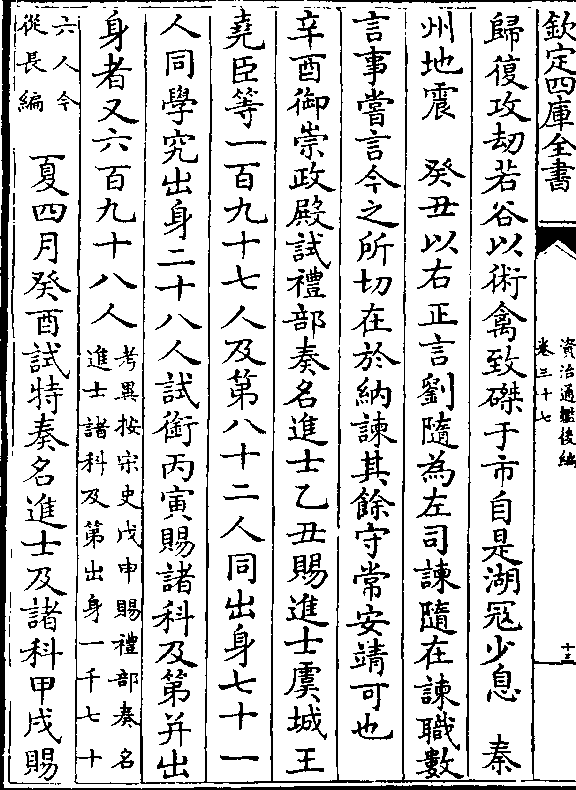 欽定四庫全書
資治通鑑後編
卷三十七
十三
歸復攻劫若谷以術禽致磔于市自是湖冦少息　秦
州地震　癸丑以右正言劉隨為左司諫隨在諫職數
言事嘗言今之所切在於納諫其餘守常安靖可也
辛酉御崇政殿試禮部奏名進士乙丑賜進士虞城王
堯臣等一百九十七人及第八十二人同出身七十一
人同學究出身二十八人試銜丙寅賜諸科及第并出
身者又六百九十八人
考異按宋史戊申賜禮部奏名
進士諸科及第出身一千七十
六人今
從長編
夏四月癸酉試特奏名進士及諸科甲戌賜